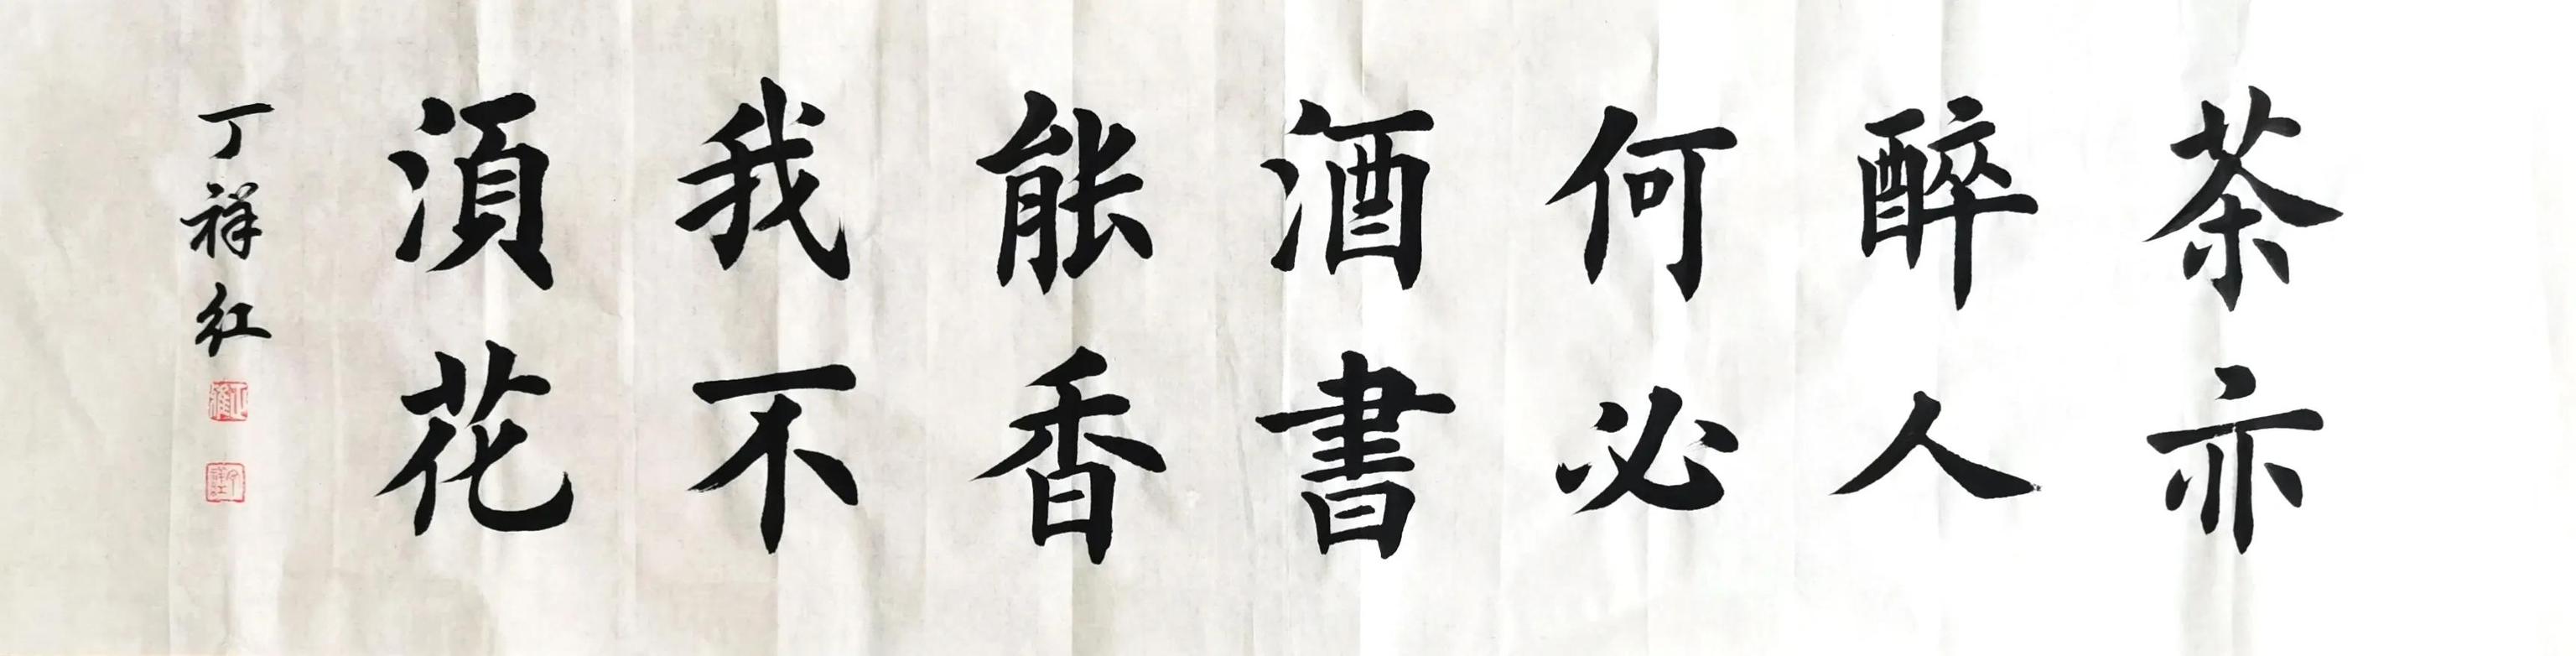 茶亦
醉人
何必
酒書
能香
我不
須花
丁祥红